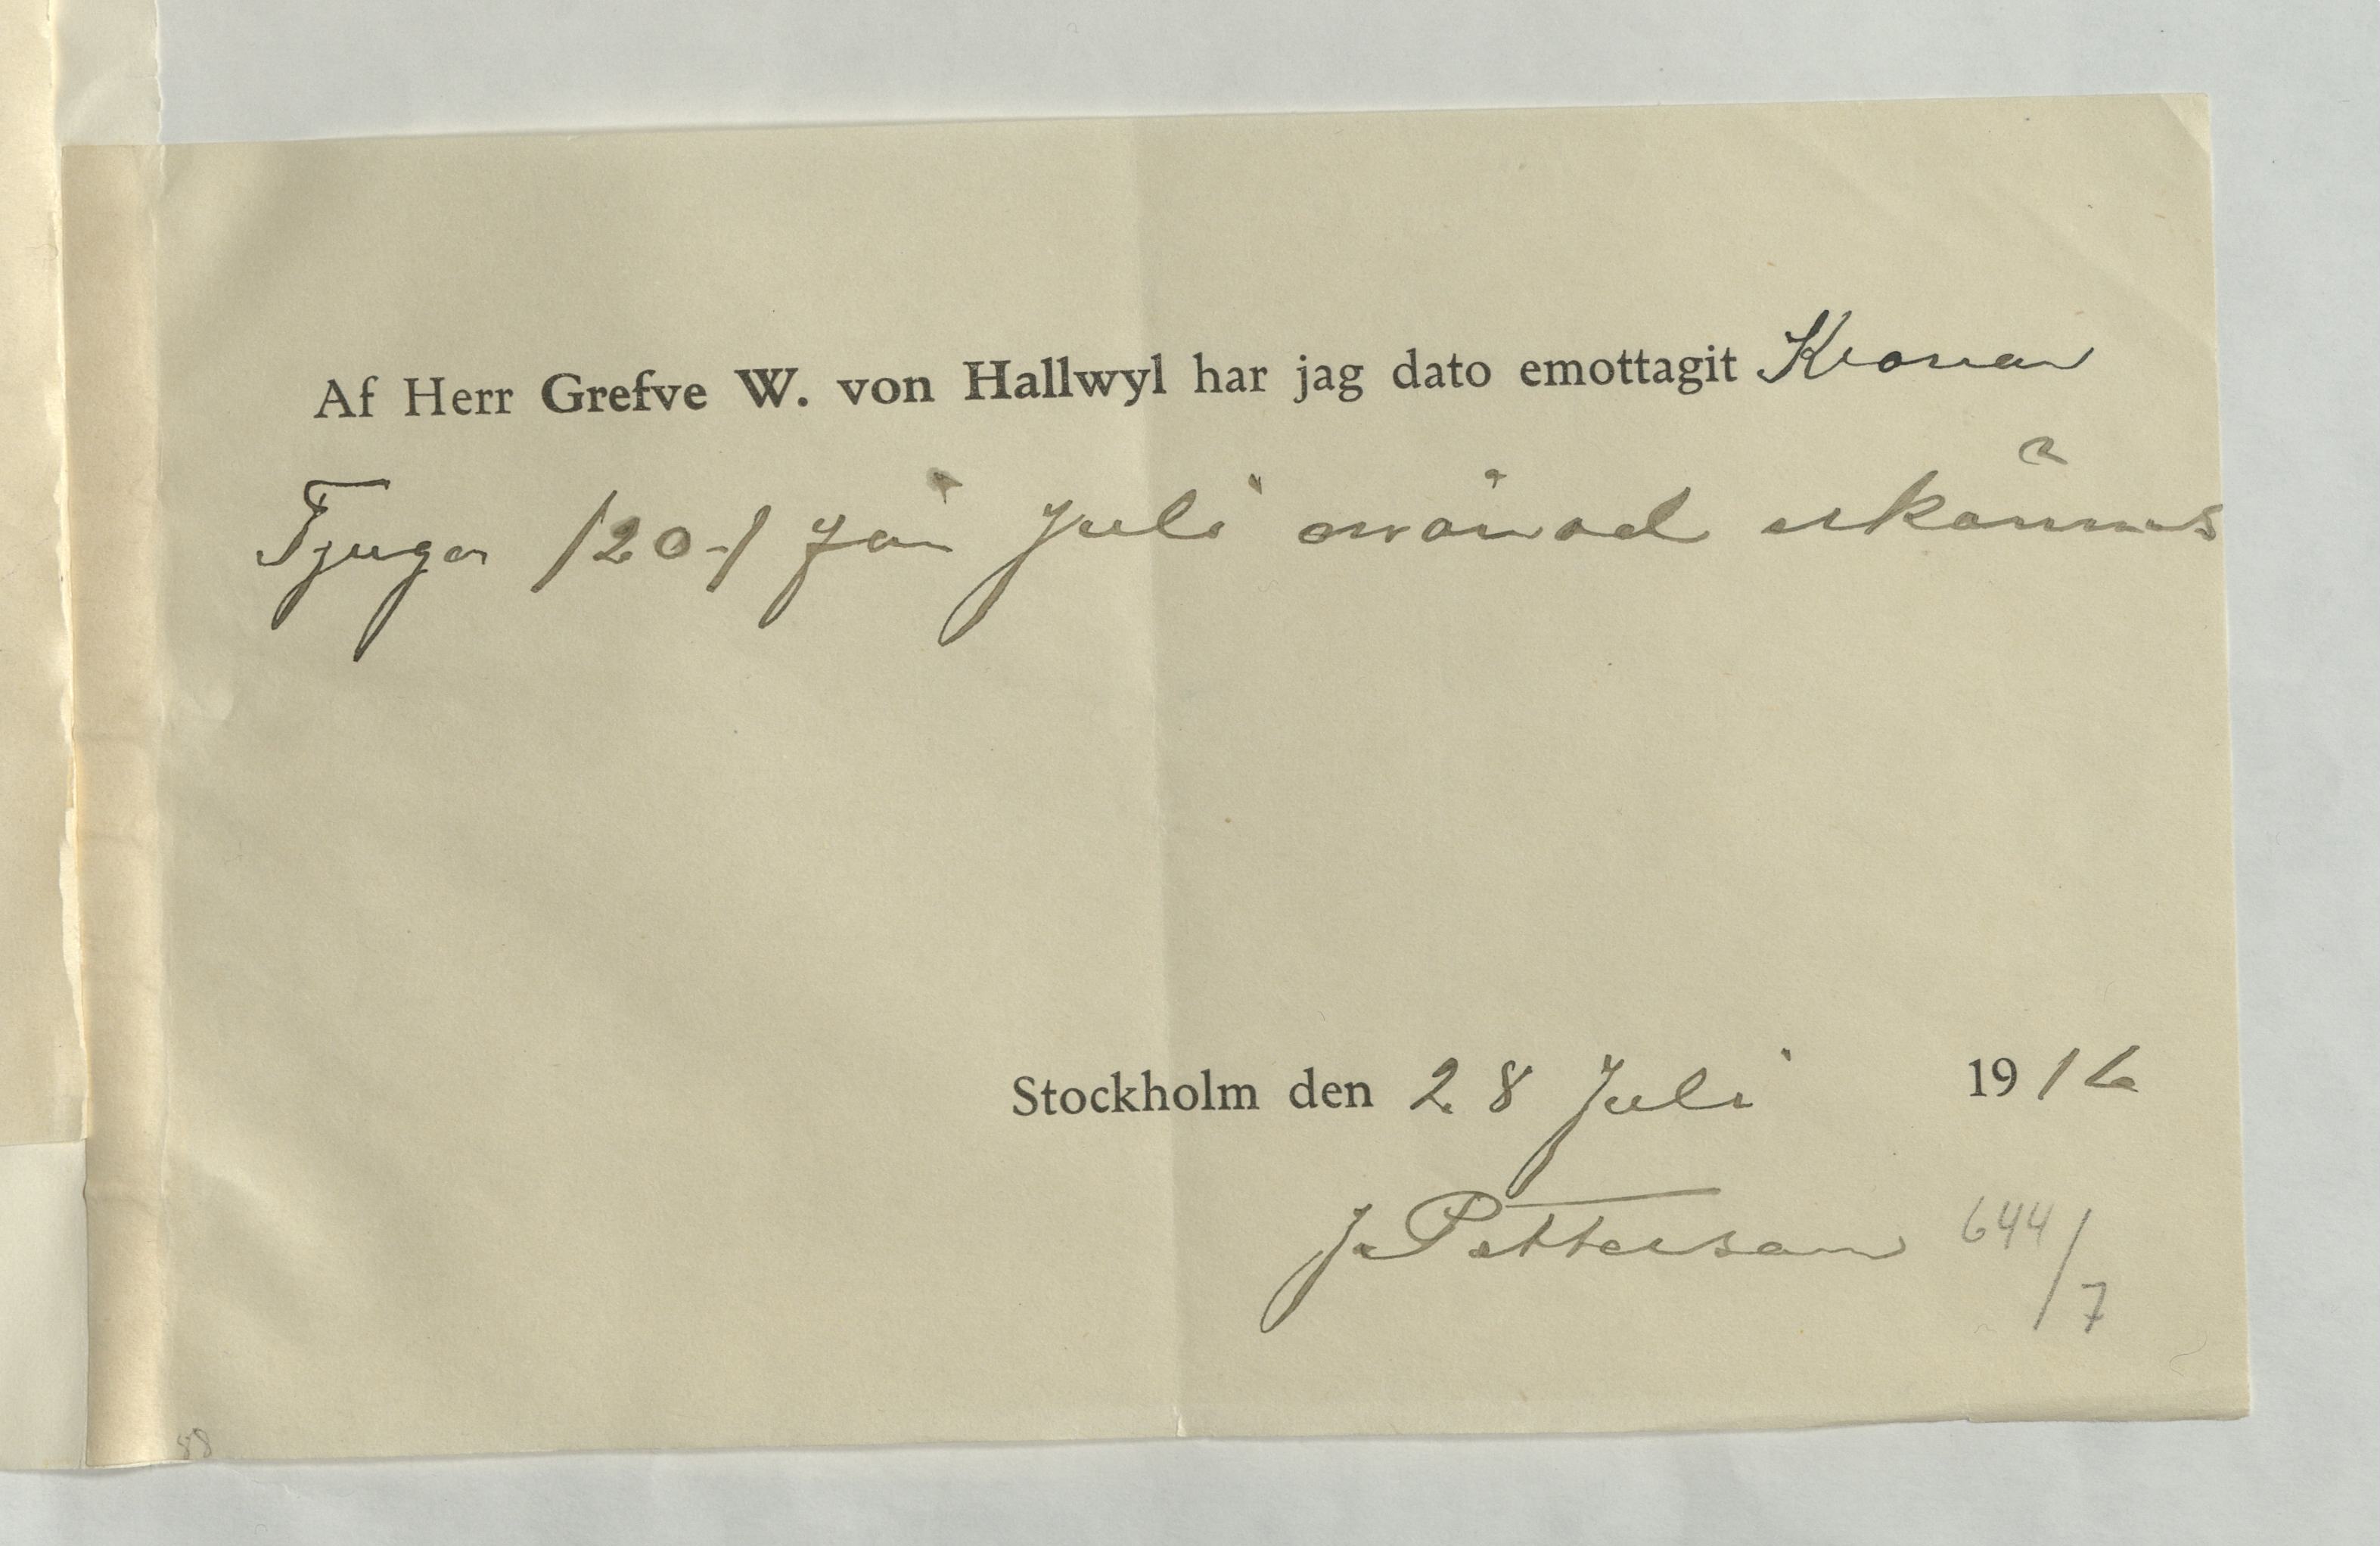 Af Herr Grefve W. von Hallwyl har jag dato emottagit Kronor
Tjugo /20-/ för Juli månad erkännes
Stockholm den 28 Juli 1916
J Petterson 644/7
88